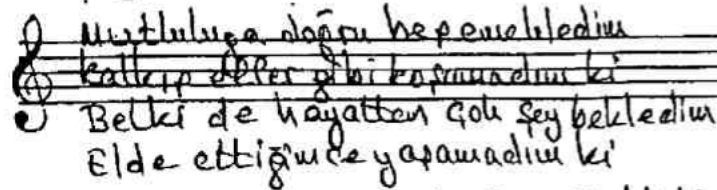 Mutluluğa doğru hep emekledim
Kalkıp eller gibi koşamadım ki
Belki de hayattan çok şey bekledim
Elde ettiğimce yaşamadım ki